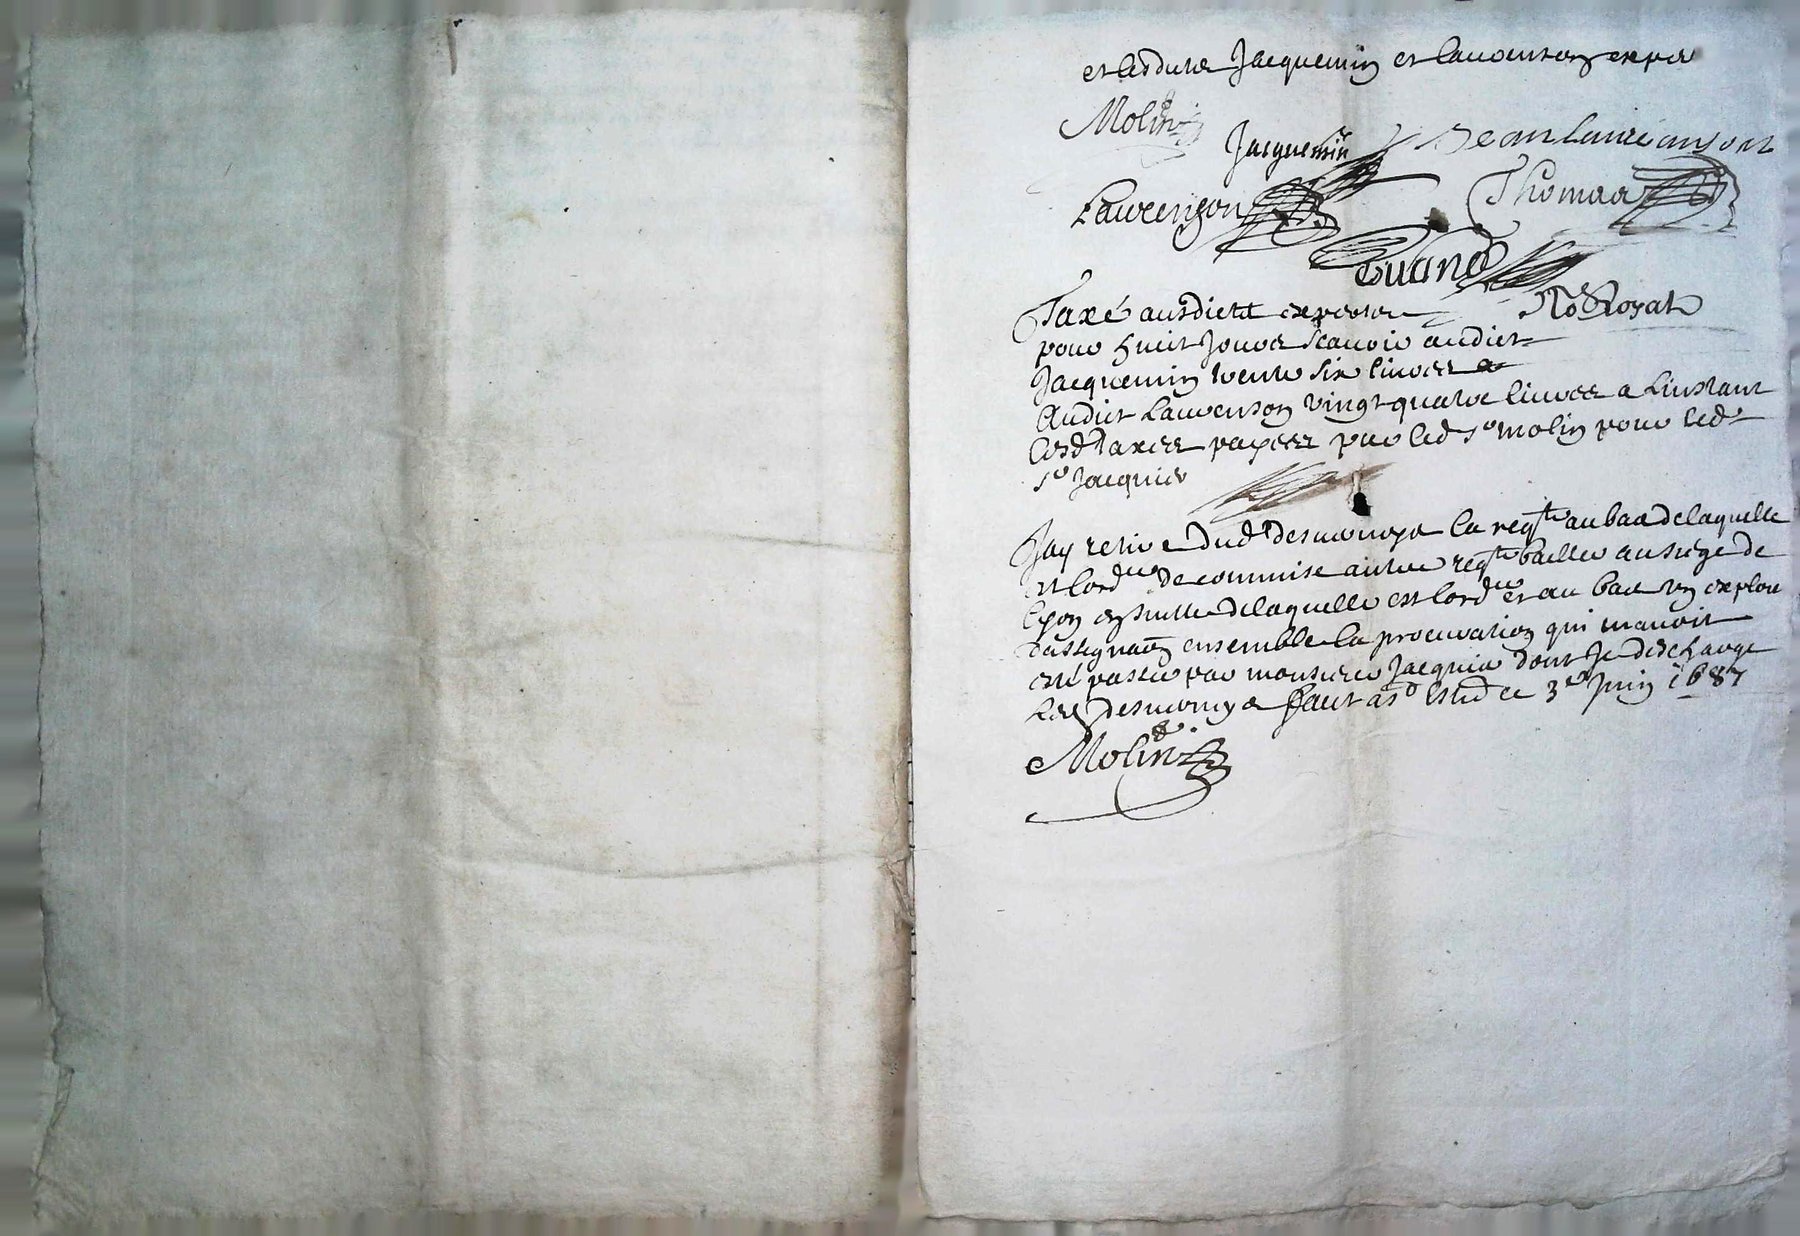 et lesdits Jacquemin et Laurenson expers
Molin
Jacquemin Jean laurianson
Laurenson Thomas
Cuand
Taxé ausdicts expers No.re Royal
pour huict jours scavoir audict
Jacquemin trente six livres
Audict Laurenson vingt quatre livres a L'instant
lesd taxes payees par led Sr molin pour led
Sr Jacquier
Jay retiré dud desmonya la reqte au bas de laquelle
est lordce de commise autre reqte baillée au siege de
Lyon ensuitte de laquelle est lordce et au bas un exploit
dassignaon ensemble la procuration qui mavoit
esté passée par monsieur Jacquier dont Je descharge
Led desmonya faict a st Estne ce 3e Juin 1687
Molin